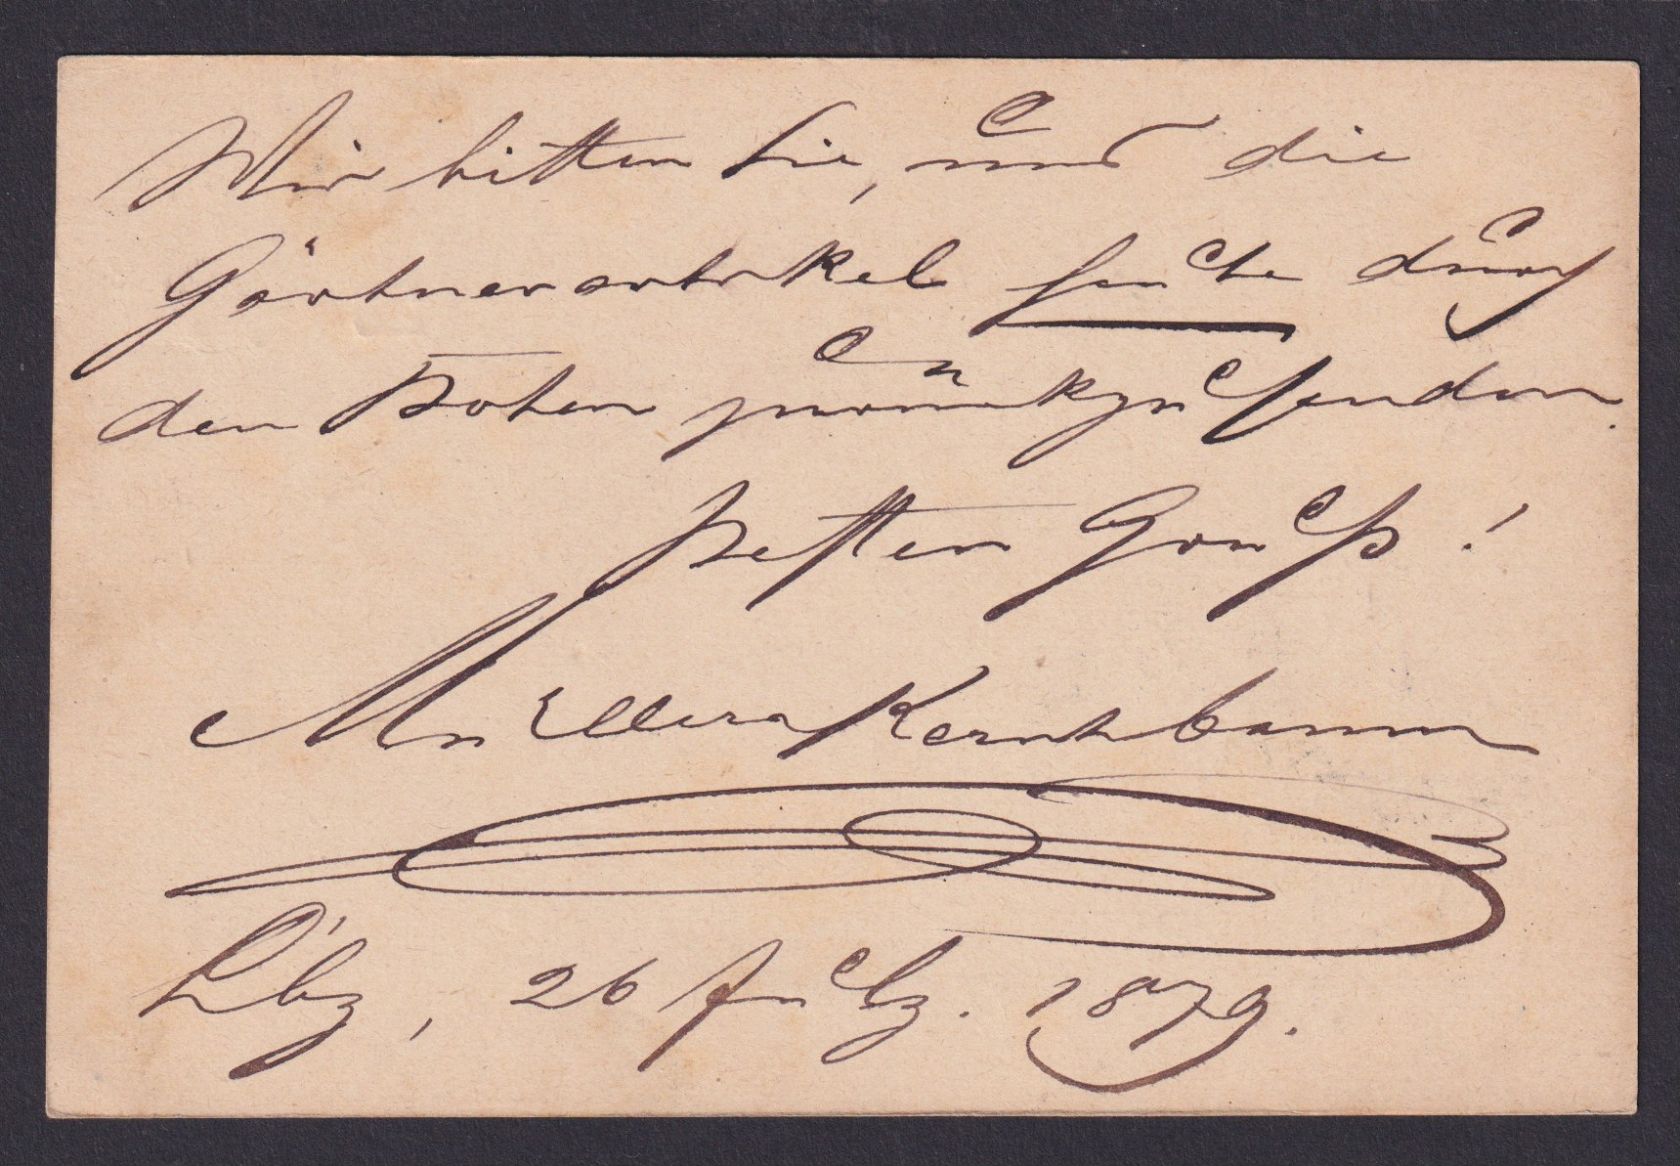 Wir bitten Sie, uns die
Gärtnerartikel heute durch
den Boten zurückzusenden.
Besten Gruß!
Müller & Kernbaum
Lbz, 26 1879.